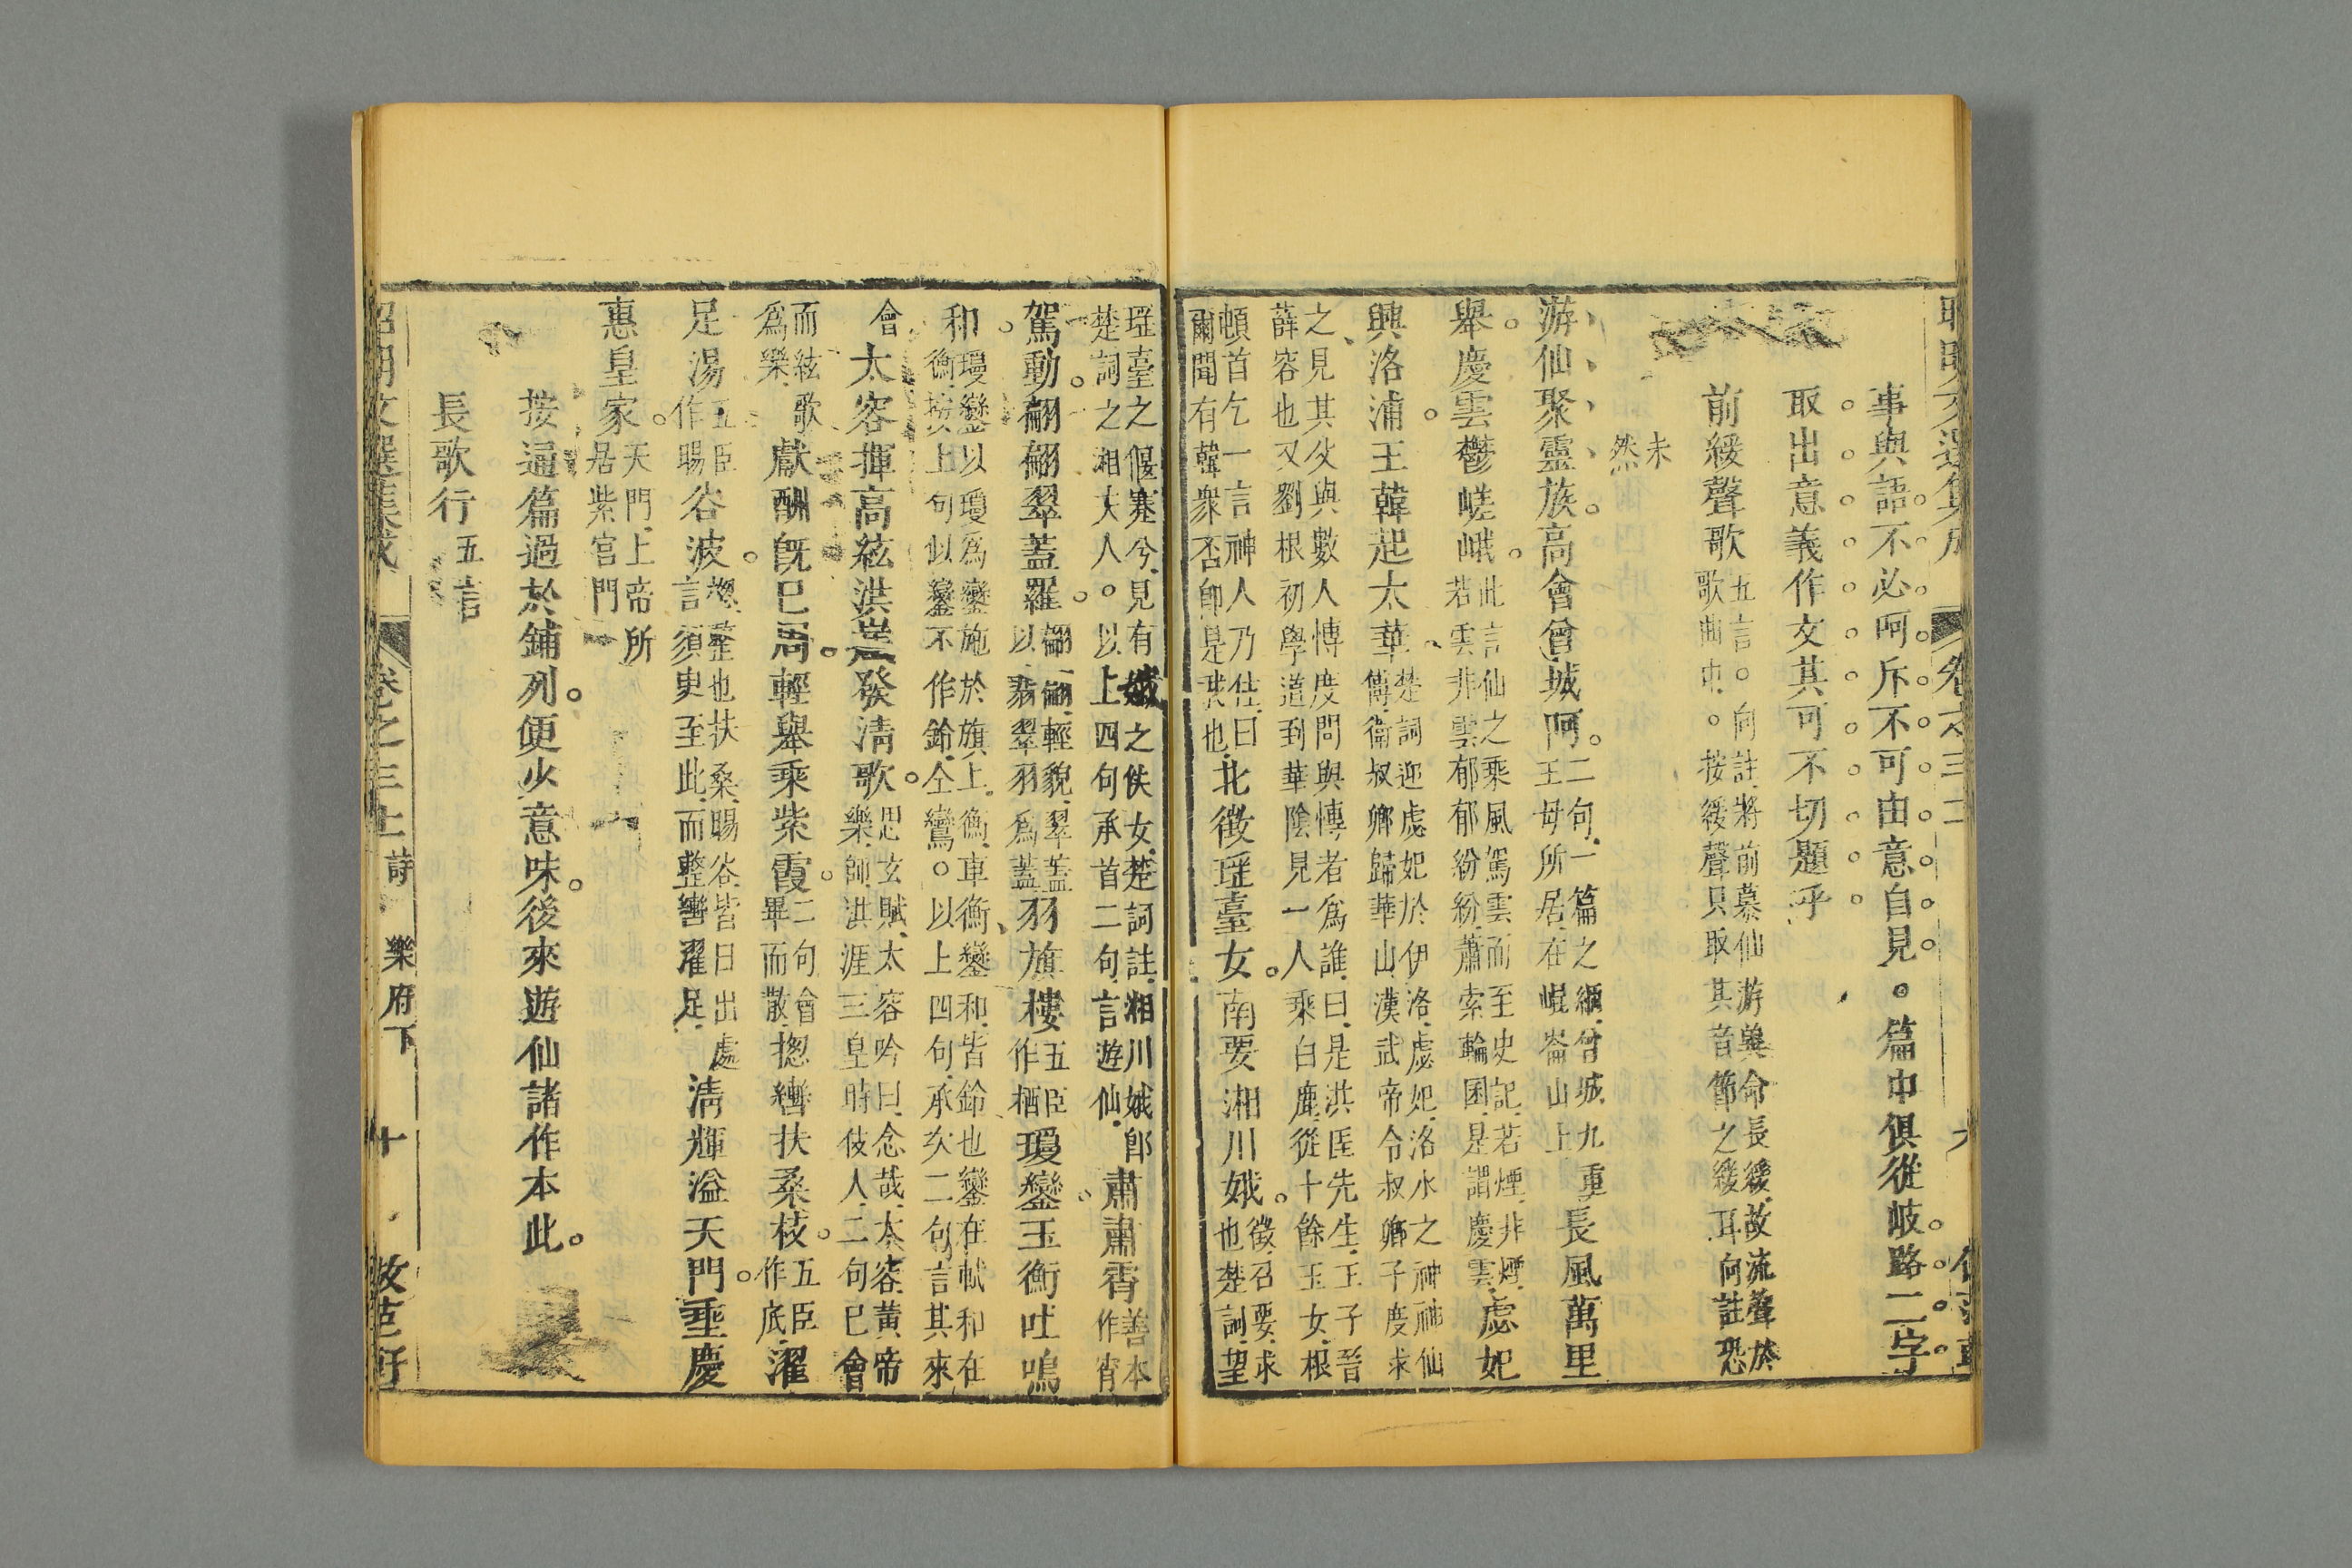 事與語不必呵斥不可由意自見。篇中俱從岐路二字
取出意義作文其可不切題乎
前緩聲歌
五言。向註將前慕仙游冀命長緩故流聲於
歌曲中。按緩聲只取其音節之緩耳向註恐
未
然
游仙聚靈族高會曾城阿
二句一篇之綱曾城九重
王母所居在崐崙山上
長風萬里
舉慶雲鬱嵯峨
此言仙之乘風駕雲而至史記若煙非煙
若雲非雲郁郁紛紛蕭索輪囷是謂慶雲
虙妃
興洛浦王韓起太華
楚詞迎虙妃於伊洛虙妃洛水之神神仙
傳衛叔卿歸華山漢武帝令叔卿子度求
之見其父與數人慱度問與慱者爲誰曰是洪厓先生王子晉
薛容也又劉根初學道到華陰見一人乘白鹿從十餘玉女根
頓首乞一言神人乃住曰
爾聞有韓衆否卽是我也
北徵瑶臺女南要湘川娥
徵召要求
也楚詞望
瑶臺之偃蹇兮見有娀之佚女楚詞註湘川娥卽
楚詞之湘夫人。以上四句承首二句言遊仙
肅肅霄
善本
作宵
駕動翩翩翠蓋羅
翩翩輕貌翠蓋
以翡翠羽爲蓋
羽旗棲
五臣
作栖
瓊鑾玉衡吐鳴
和
瓊鑾以瓊爲鑾施於旗上衡車衡鑾和皆鈴也鑾在軾和在
衡按上句似鑾不作鈴仝鸞。以上四句承次二句言其來
會
太容揮高絃洪崖發清歌
思玄賦太容吟曰念哉太容黃帝
樂師洪涯三皇時伎人二句已會
而絃歌
爲樂
獻酬旣已周輕舉乘紫霞
二句會
畢而散
揔轡扶桑枝
五臣
作底
濯
足湯
五臣
作暘
谷波
揔整也扶桑暘谷皆日出處
言須臾至此而整轡濯足
清輝溢天門垂慶
惠皇家
天門上帝所
居紫宮門
按逼篇過於鋪列便少意味後來遊仙諸作本此
長歌行
五言
卷之三上
詩
樂府下
十